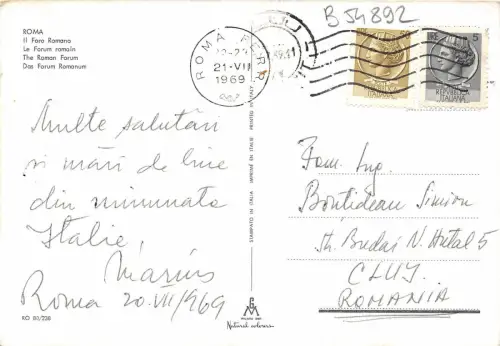 ROMA
Il Foro Romano
Le Forum romain
The Roman Forum
Das Forum Romanum
B 54892
ROMA FERR.
21-VII
1969
LIRE 5
REPVBBLICA
ITALIANA
REPVBBLICA
ITALIANA
Multe salutări
și mări de bine
din minunata
Italie,
Marius
Roma 20.VII/969
STAMPATO IN ITALIA IMPRIMÉ EN ITALIE PRINTED IN ITALY
Fam. Ing.
Bontidean Simion
Str. Budai N. 5
CLUJ
ROMANIA
RO 80/238
Natural colours